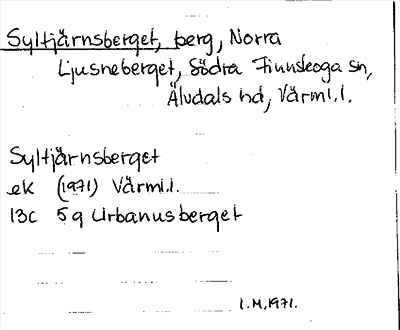 Syltjärnsberget, berg, Norra
Ljusneberget, Södra Finnskoga sn,
Älvdals hd, Värml.l.
Syltjärnsberget
ek (1971) Värml.l.
13c 5 g Urbanusberget
I.M.1971.